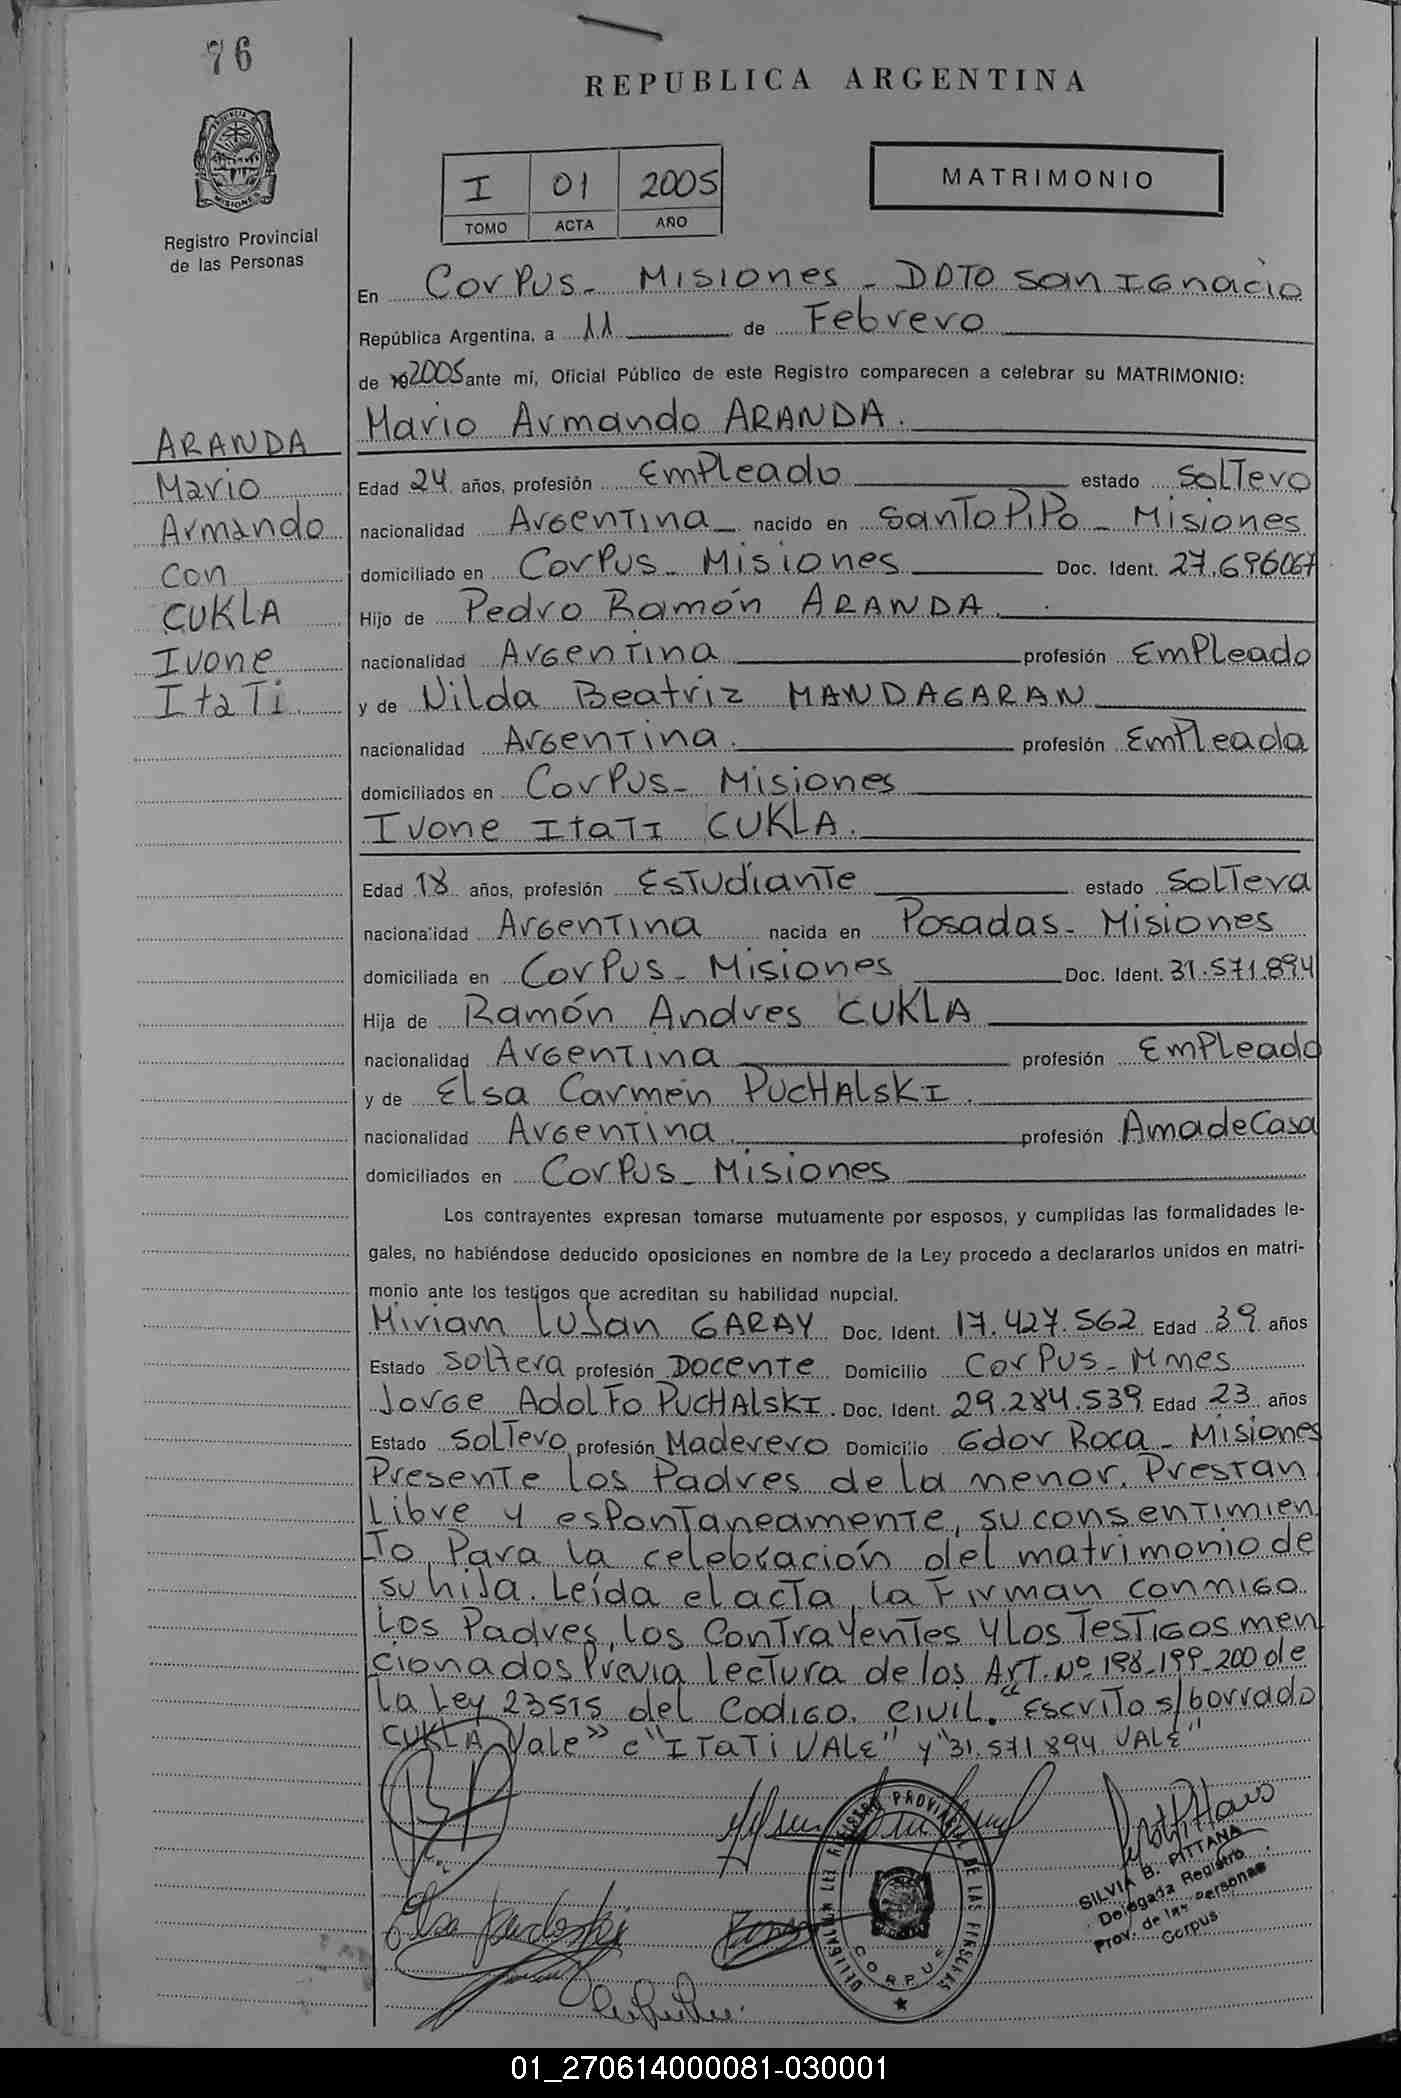 76
REPUBLICA ARGENTINA
PROVINCIA DE MISIONES
Registro Provincial
de las Personas
I 01 2005
TOMO ACTA AÑO
MATRIMONIO
En Corpus - Misiones - DPTO San Ignacio
República Argentina, a 11 de Febrero
de 192005 ante mí, Oficial Público de este Registro comparecen a celebrar su MATRIMONIO:
Mario Armando ARANDA.
ARANDA
Mario
Armando
con
CUKLA
Ivone
Itati
Edad 24 años, profesión Empleado estado Soltero
nacionalidad Argentina nacido en Santo Pipo - Misiones
domiciliado en Corpus - Misiones Doc. Ident. 27.696067
Hijo de Pedro Ramón ARANDA.
nacionalidad Argentina profesión Empleado
y de Nilda Beatriz MANDAGARAN
nacionalidad Argentina. profesión Empleada
domiciliados en Corpus - Misiones
Ivone Itati CUKLA.
Edad 18 años, profesión Estudiante estado Soltera
nacionalidad Argentina nacida en Posadas - Misiones
domiciliada en Corpus - Misiones Doc. Ident. 31.571.894
Hija de Ramón Andres CUKLA
nacionalidad Argentina profesión Empleado
y de Elsa Carmen PUCHALSKI.
nacionalidad Argentina profesión Ama de Casa
domiciliados en Corpus - Misiones
Los contrayentes expresan tomarse mutuamente por esposos, y cumplidas las formalidades le-
gales, no habiéndose deducido oposiciones en nombre de la Ley procedo a declararlos unidos en matri-
monio ante los testigos que acreditan su habilidad nupcial.
Miriam Lujan GARAY Doc. Ident. 17.427.562 Edad 39 años
Estado Soltera profesión Docente Domicilio Corpus - Mnes
Jorge Adolfo PUCHALSKI. Doc. Ident. 29.284.539 Edad 23 años
Estado Soltero profesión Maderero Domicilio Gdor Roca - Misiones
Presente los Padres de la menor. Prestan
Libre y espontaneamente, su consentimien
to, Para la celebración del matrimonio de
su hija. Leída el acta, la Firman conmigo
Los Padres, los Contrayentes y los Testigos men
cionados Previa lectura de los Art. Nº 198-199-200 de
la Ley 23515 del Codigo. Civil. "Escrito s/borrado
CUKLA Vale" e "Itati VALE" y "31.571.894 VALE"
REGISTRO PROVINCIAL DE LAS PERSONAS
CORPUS
SILVIA B. PITTANA
Delegada Registro
Prov. de las Personas
Corpus
01_270614000081-030001